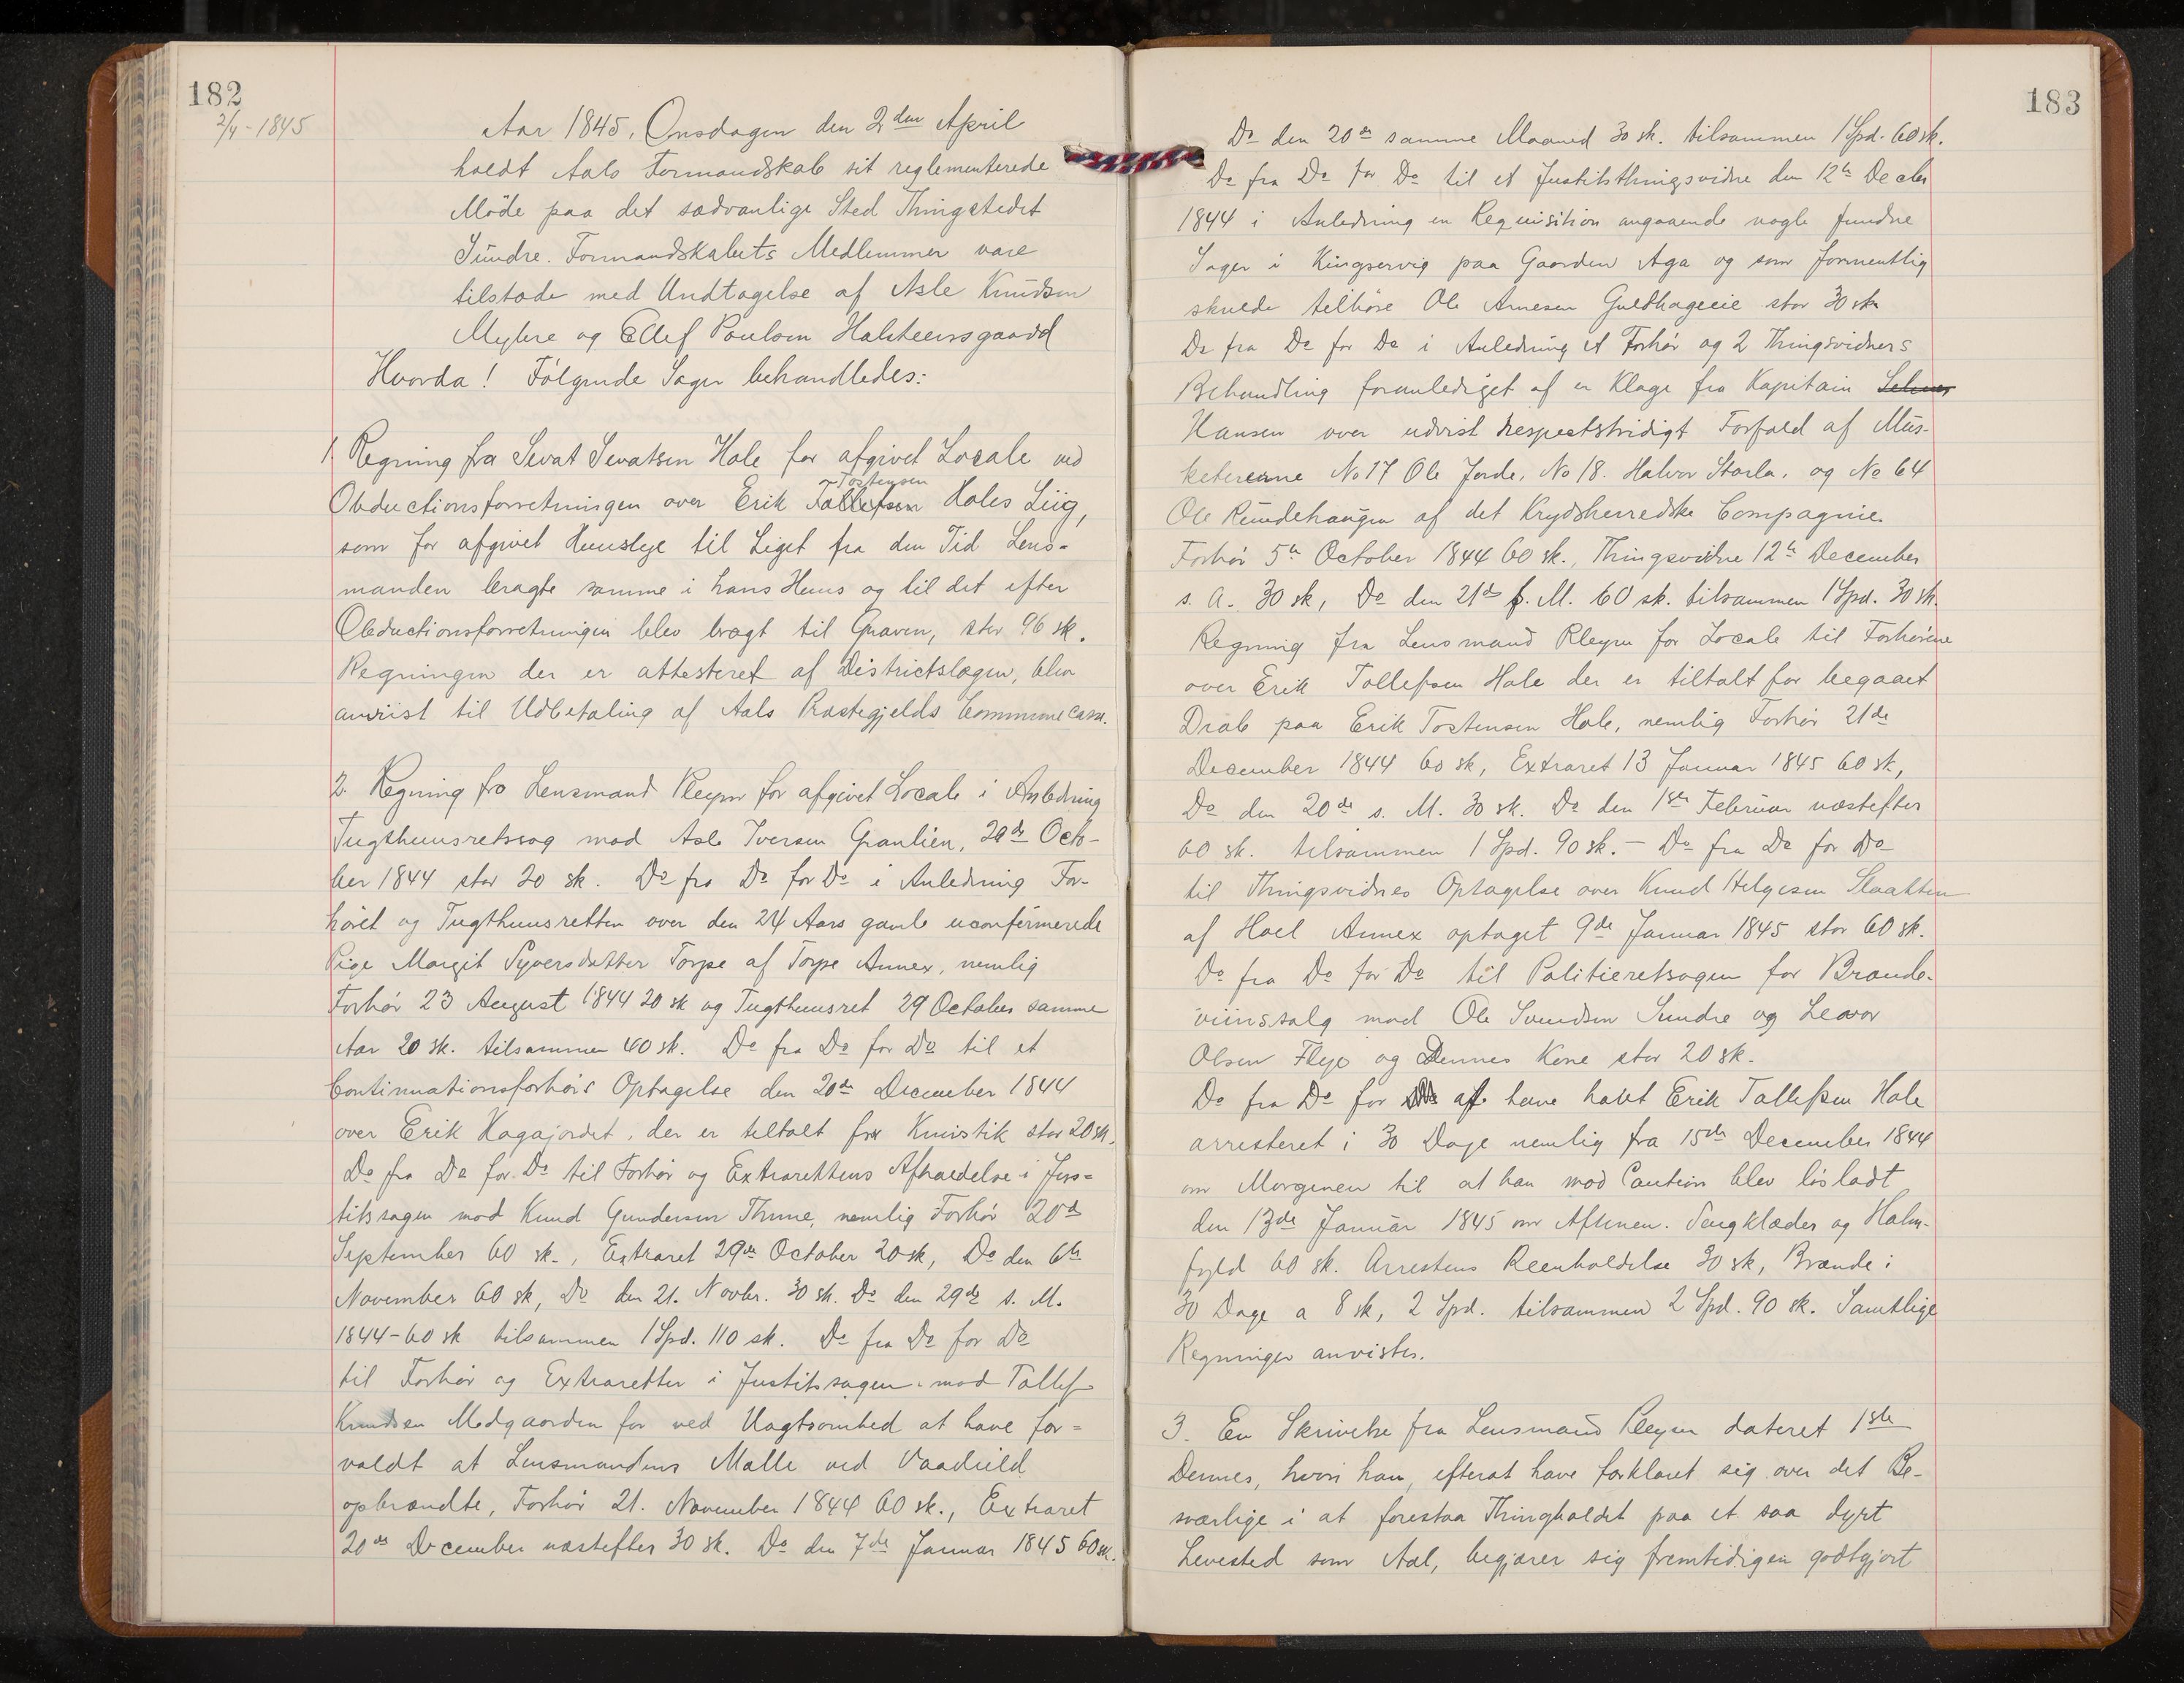 182
2/4-1845
Aar 1845, Onsdagen den 2den April
holdt Aals Formandskab sit reglementerede
Møde paa det sædvanlige Sted Thingstedet
Sundre. Formandskabets Medlemmer vare
tilstæde med Undtagelse af Asle Knudsen
Myhre og Ellef Poulsen Halsteensgaard
Hvorda! Følgende Sager behandledes:
1. Regning fra Sevat Sevatsen Hole for afgivet Locale ved
Tostensen
Obductionsforretningen over Erik Tollefsen Holes Liig,
som for afgivet Huusleje til Liget fra den Tid Lens-
manden bragte samme i hans Huus og til det efter
Obductionsforretningen blev bragt til Graven, stor 96 sk.
Regningen der er attesteret af Districtslægen, blev
anviist til Udbetaling af Aals Præstegjelds Communecasse.
2. Regning fra Lensmand Pleym for afgivet Locale i Anledning
Tugthuusretssag mod Asle Iversen Granlien, 29de Octo-
ber 1844 stor 20 sk. Do fra Do for Do i Anledning For-
høret og Tugthuusretten over den 24 Aars gamle uconfirmerede
Pige Margit Syversdatter Torpe af Torpe Annex, nemlig
Forhør 23 August 1844 20 sk og Tugthuusret 29 October samme
Aar 20 sk. tilsammen 40 sk. Do fra Do for Do til et
Continuationsforhørs Optagelse den 20de December 1844
over Erik Hagajordet, der er tiltalt for Knivstik stor 20 sk.
Do fra Do for Do til Forhør og Extrarettens Afholdelse i Jus-
titssagen mod Knud Gundersen Thune, nemlig Forhør 20de
September 60 sk., Extraret 29de October 20 sk, Do den 6te
November 60 sk, Do den 21. Novbr. 30 sk. Do den 29de s. M.
1844-60 sk tilsammen 1 Spd. 110 sk. Do fra Do for Do
til Forhør og Extraretter i Justitssagen mod Tollef
Knudsen Medgaarden for ved Uagtsomhed at have for-
voldt at Lensmandens Mølle ved Vaadeild
opbrændte, Forhør 21. November 1844 60 sk., Extraret
20de December næstefter 30 sk. Do den 7de Januar 1845 60 sk.
183
Do den 20de samme Maaned 30 sk. tilsammen 1 Spd. 60 sk.
Do fra Do for Do til et Justitsthingsvidne den 12te Decbr
1844 i Anledning en Requisition angaaende nogle fundne
Sager i Kingservig paa Gaarden Aga og som formentlig
skulde tilhøre Ole Arnesen Guldhageeie stor 30 sk
Do fra Do for Do i Anledning et Forhør og 2 Thingsvidners
Behandling foranlediget af en Klage fra Kapitain
Hansen over udvist respectstridigt Forfald af Mus-
keterene No 17 Ole Jorde, No 18. Halvor Storla, og No 64
Ole Rundehaugen af det Krydsherredske Compagnie.
Forhør 5te October 1844 60 sk., Thingsvidne 12te December
s. A. 30 sk, Do den 21de s. M. 60 sk. tilsammen 1 Spd. 30 sk.
Regning fra Lensmand Pleym for Locale til Forhørene
over Erik Tollefsen Hole der er tiltalt for begaaet
Drab paa Erik Tostensen Hole, nemlig Forhør 21de
December 1844 60 sk, Extraret 13 Januar 1845 60 sk,
Do den 20de s. M. 30 sk. Do den 1ste Februar næstefter
60 sk. tilsammen 1 Spd. 90 sk. - Do fra Do for Do
til Thingsvidnes Optagelse over Knud Helgesen Slaatten
af Hoel Annex optaget 9de Januar 1845 stor 60 sk.
Do fra Do for Do til Politieretsagen for Brænde-
viinssalg mod Ole Svendsen Sundre og Levor
Olsen Flyo og Dennes Kone stor 20 sk.
Do fra Do for at have havt Erik Tollefsen Hole
arresteret i 30 Dage nemlig fra 15de December 1844
om Morgenen til at han mod Caution blev løsladt
den 13de Januar 1845 om Aftenen. Sengklæder og Halm-
fyld 60 sk. Arrestens Reenholdelse 30 sk, Brænde i
30 Dage a 8 sk, 2 Spd. tilsammen 2 Spd. 90 sk. Samtlige
Regninger anvistes.
3. En Skrivelse fra Lensmand Pleym dateret 1ste
Dennes, hvori han, efterat have forklaret sig over det Be-
sværlige i at forestaa Thingholdet paa et saa dyrt
Levested som Aal, begjærer sig fremtidigen godtgjort